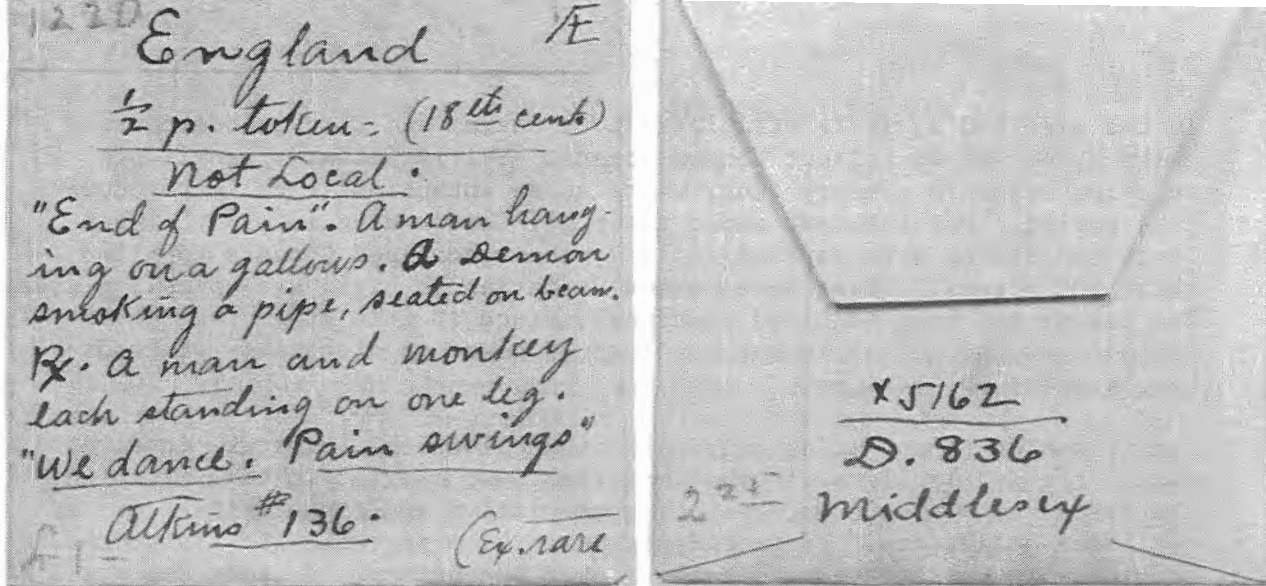 1220
England Æ
½ p. token - (18th cent)
Not Local.
"End of Pain". A man hang-
ing on a gallows. A Demon
smoking a pipe, seated on beam.
Rx. A man and monkey
each standing on one leg.
"We dance. Pain swings"
Atkins #136.
£1-
(Ex. rare
x5162
D. 836
Middlesex